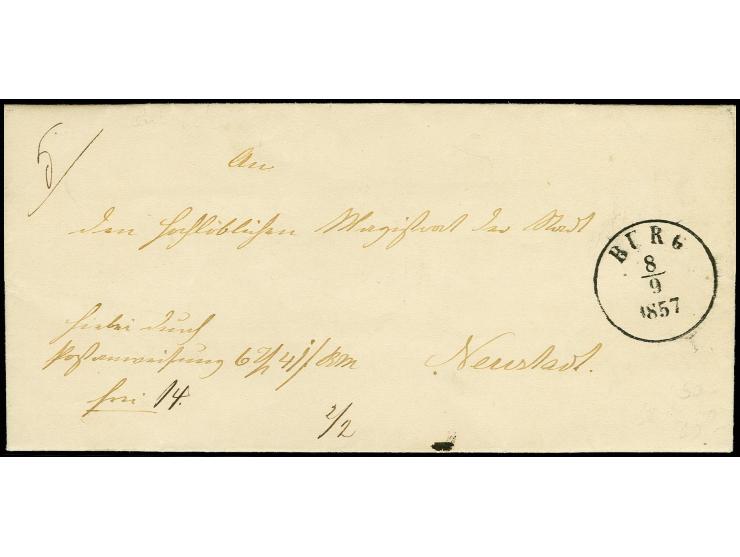 5/
An
den hochlöblichen Magistrat der Stadt
BURG
8/9
1857
hiebei durch
Postanweisung
Neustadt.
frei 14.
2/2